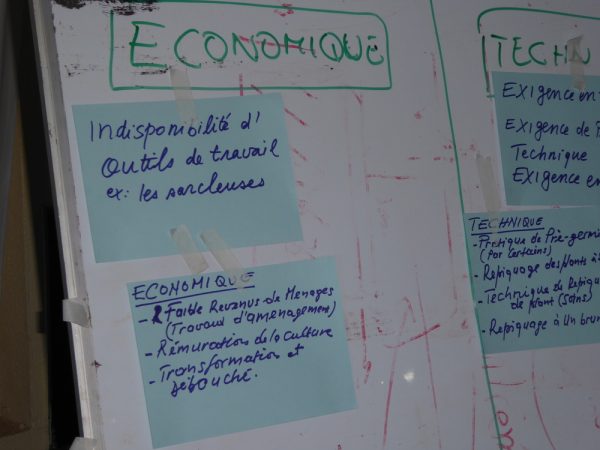 ECONOMIQUE
Indisponibilité d'
Outils de travail
ex: les sarcleuses
ECONOMIQUE
- Faible Revenus de Menages
(Travaux d'amenagement)
- Rémuration de la culture
- Transformation et
débouché.
TECHN
EXIgence en
EXIgence de
Technique
EXIgence en
TECHNIQUE
- Pratique de Pré-germi
(Par Certains)
- Repiquage des plants à
- Technique de Repiqu
de plant (Soins)
- Repiquage à un brun